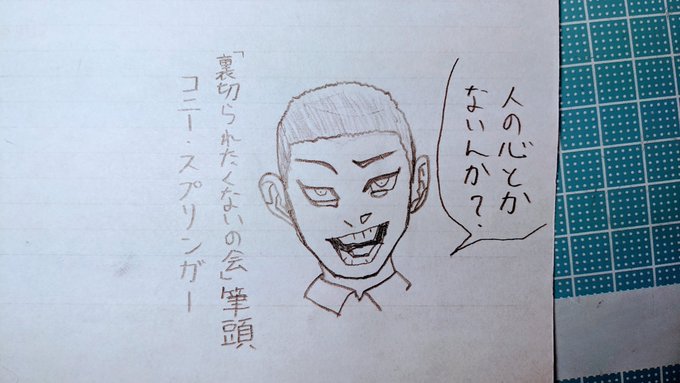 人の心とか
ないんか?
「裏切られたくないの会」筆頭
コニー・スプリンガー